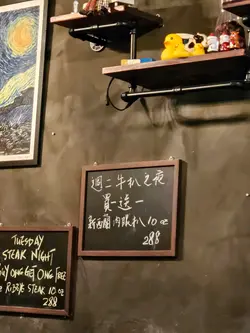 TUESDAY
STEAK NIGHT
BUY ONE GET ONE FREE
RIBEYE STEAK 10 oz
288
週二牛扒之夜
買一送一
新西蘭肉眼扒 10 oz
288